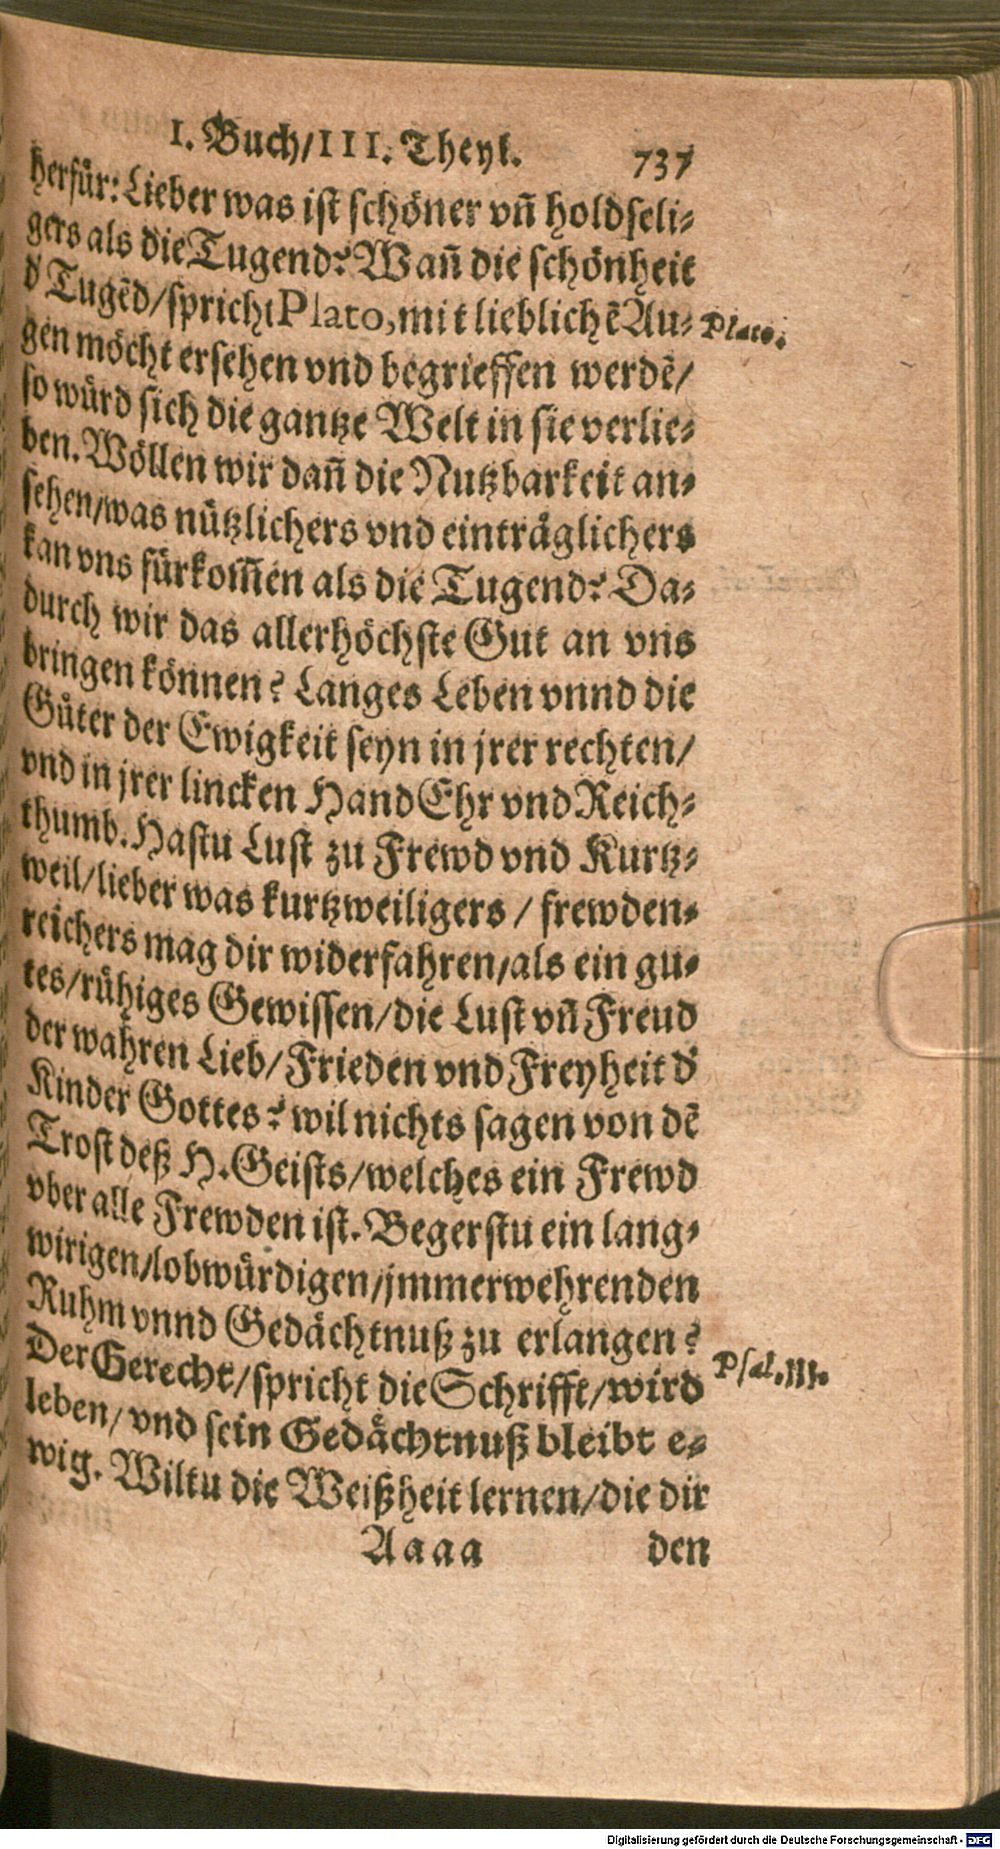 I. Buch/III. Theyl. 737
herfür: Lieber was ist schöner vñ holdseli-
gers als die Tugend? Wañ die schönheit
d' Tugẽd/spricht Plato, mit lieblichẽ Au-
Plato.
gen möcht ersehen vnd begrieffen werdẽ/
so würd sich die gantze Welt in sie verlie-
ben. Wöllen wir dañ die Nutzbarkeit an-
sehen/was nützlichers vnd einträglichers
kan vns fürkom̃en als die Tugend? Da-
durch wir das allerhöchste Gut an vns
bringen können? Langes Leben vnnd die
Gůter der Ewigkeit seyn in jrer rechten/
vnd in jrer lincken Hand Ehr vnd Reich-
thumb. Hastu Lust zu Frewd vnd Kurtz-
weil/lieber was kurtzweiligers / frewden-
reichers mag dir widerfahren/als ein gu-
tes/rühiges Gewissen/die Lust vñ Freud
der wahren Lieb/Frieden vnd Freyheit d'
Kinder Gottes? wil nichts sagen von dẽ
Trost deß H. Geists/welches ein Frewd
vber alle Frewden ist. Begerstu ein lang-
wirigen/lobwürdigen/jmmerwehrenden
Ruhm vnnd Gedächtnuß zu erlangen?
Der Gerecht/spricht die Schrifft/wird
Psal.111.
leben/vnd sein Gedächtnuß bleibt e-
wig. Wiltu die Weißheit lernen/die dir
Aaaa den
Digitalisierung gefördert durch die Deutsche Forschungsgemeinschaft - DFG